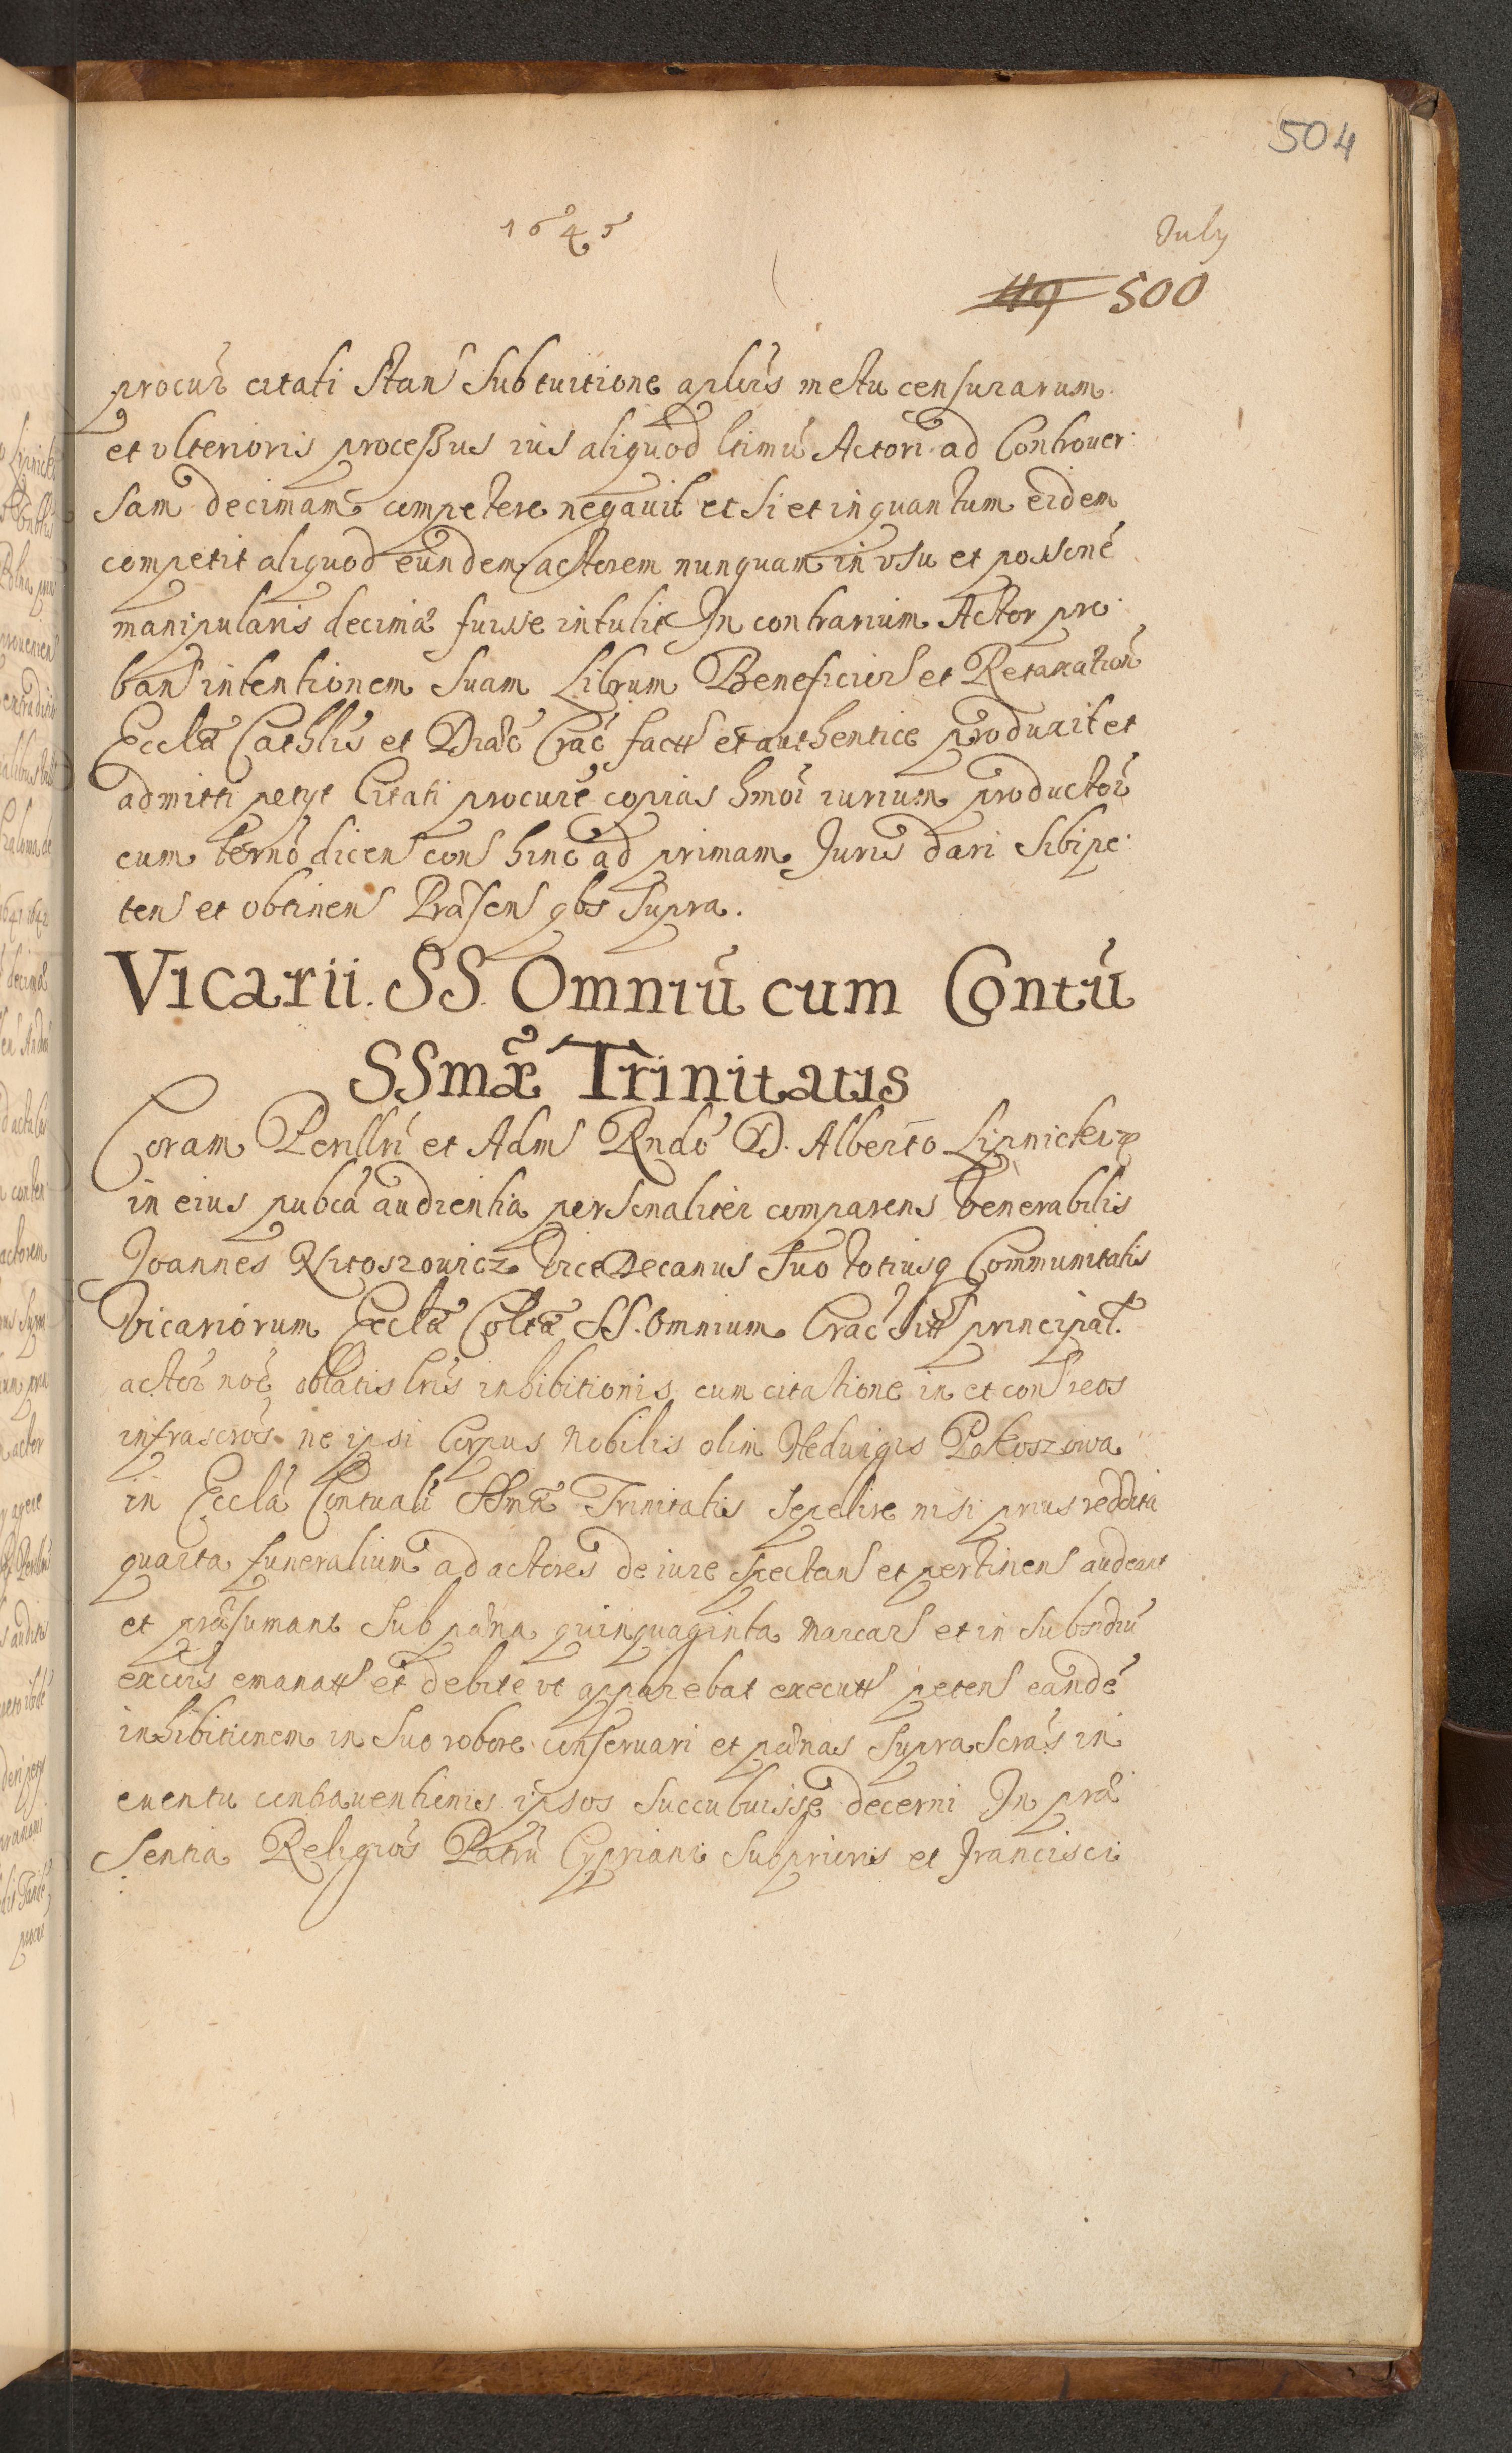 504
1645 July
119 500
procur̃ citati Stan̄ sub tuitione aplic̃s metu censurarum
et vlterioris processus ius aliquod ltimũ Actori ad Controuer:
sam decimam competere negauit et si et inquantum eidem
competit aliquod eundem actorem nunquam in vsu et possne
manipularis decimæ fuisse intulit In contrarium Actor pro:
ban̄ intentionem suam Librum Beneficior̃ et Retaxation̄
Ecclæ Cathlis et Diæc̄ Crac̄ fact̃ et authentice produxit et
admitti petyt Citati procur̃e copias hmoi iurium productor̃
cum termo dicen̄ con̄ hinc ad primam Juris dari sibi pe:
ten̄ et obtinen̄ Præsen̄ qbs supra.
Vicarii. SS. Omniũ cum Contũ
SSmæ Trinitatis
Coram Perillri et Adm̄ Rndo D. Alberto Lipnicki
in eius pubca audientia personaliter comparens Venerabilis
Joannes Vicedecanus suo totiusq Communitatis
Vicariorum Ecclæ Coltæ SS. Omnium Crac̄ principal.
actor̃ noĩe oblatis lris inhibitionis cum citatione in et con̄ reos
infrascros ne ipsi Corpus Nobilis olim Heduigis Pakoszowa
in Eccla Contuali SSmæ Trinitatis sepelire nisi prius reddita
quarta funeralium ad actores de iure spectan̄ et pertinen̄ audeant
et præsumant sub pœna quinquaginta marcar̃ et in subsidiũ
excois emanat̃ et debite vt apparebat execut̃ peten̄ eandẽ
inhibitionem in suo robore conseruari et pœnas suprascras in
euentu contrauentionis ipsos succubuisse decerni In præ
sentia Religios̃ Patrũ Cypriani Subprioris et Francisci